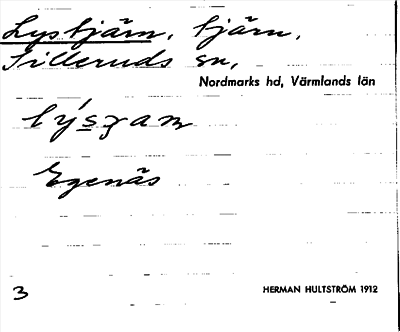 Lystjärn, tjärn,
Silleruds sn,
Nordmarks hd, Värmlands län
Egenäs
3
HERMAN HULTSTRÖM 1912